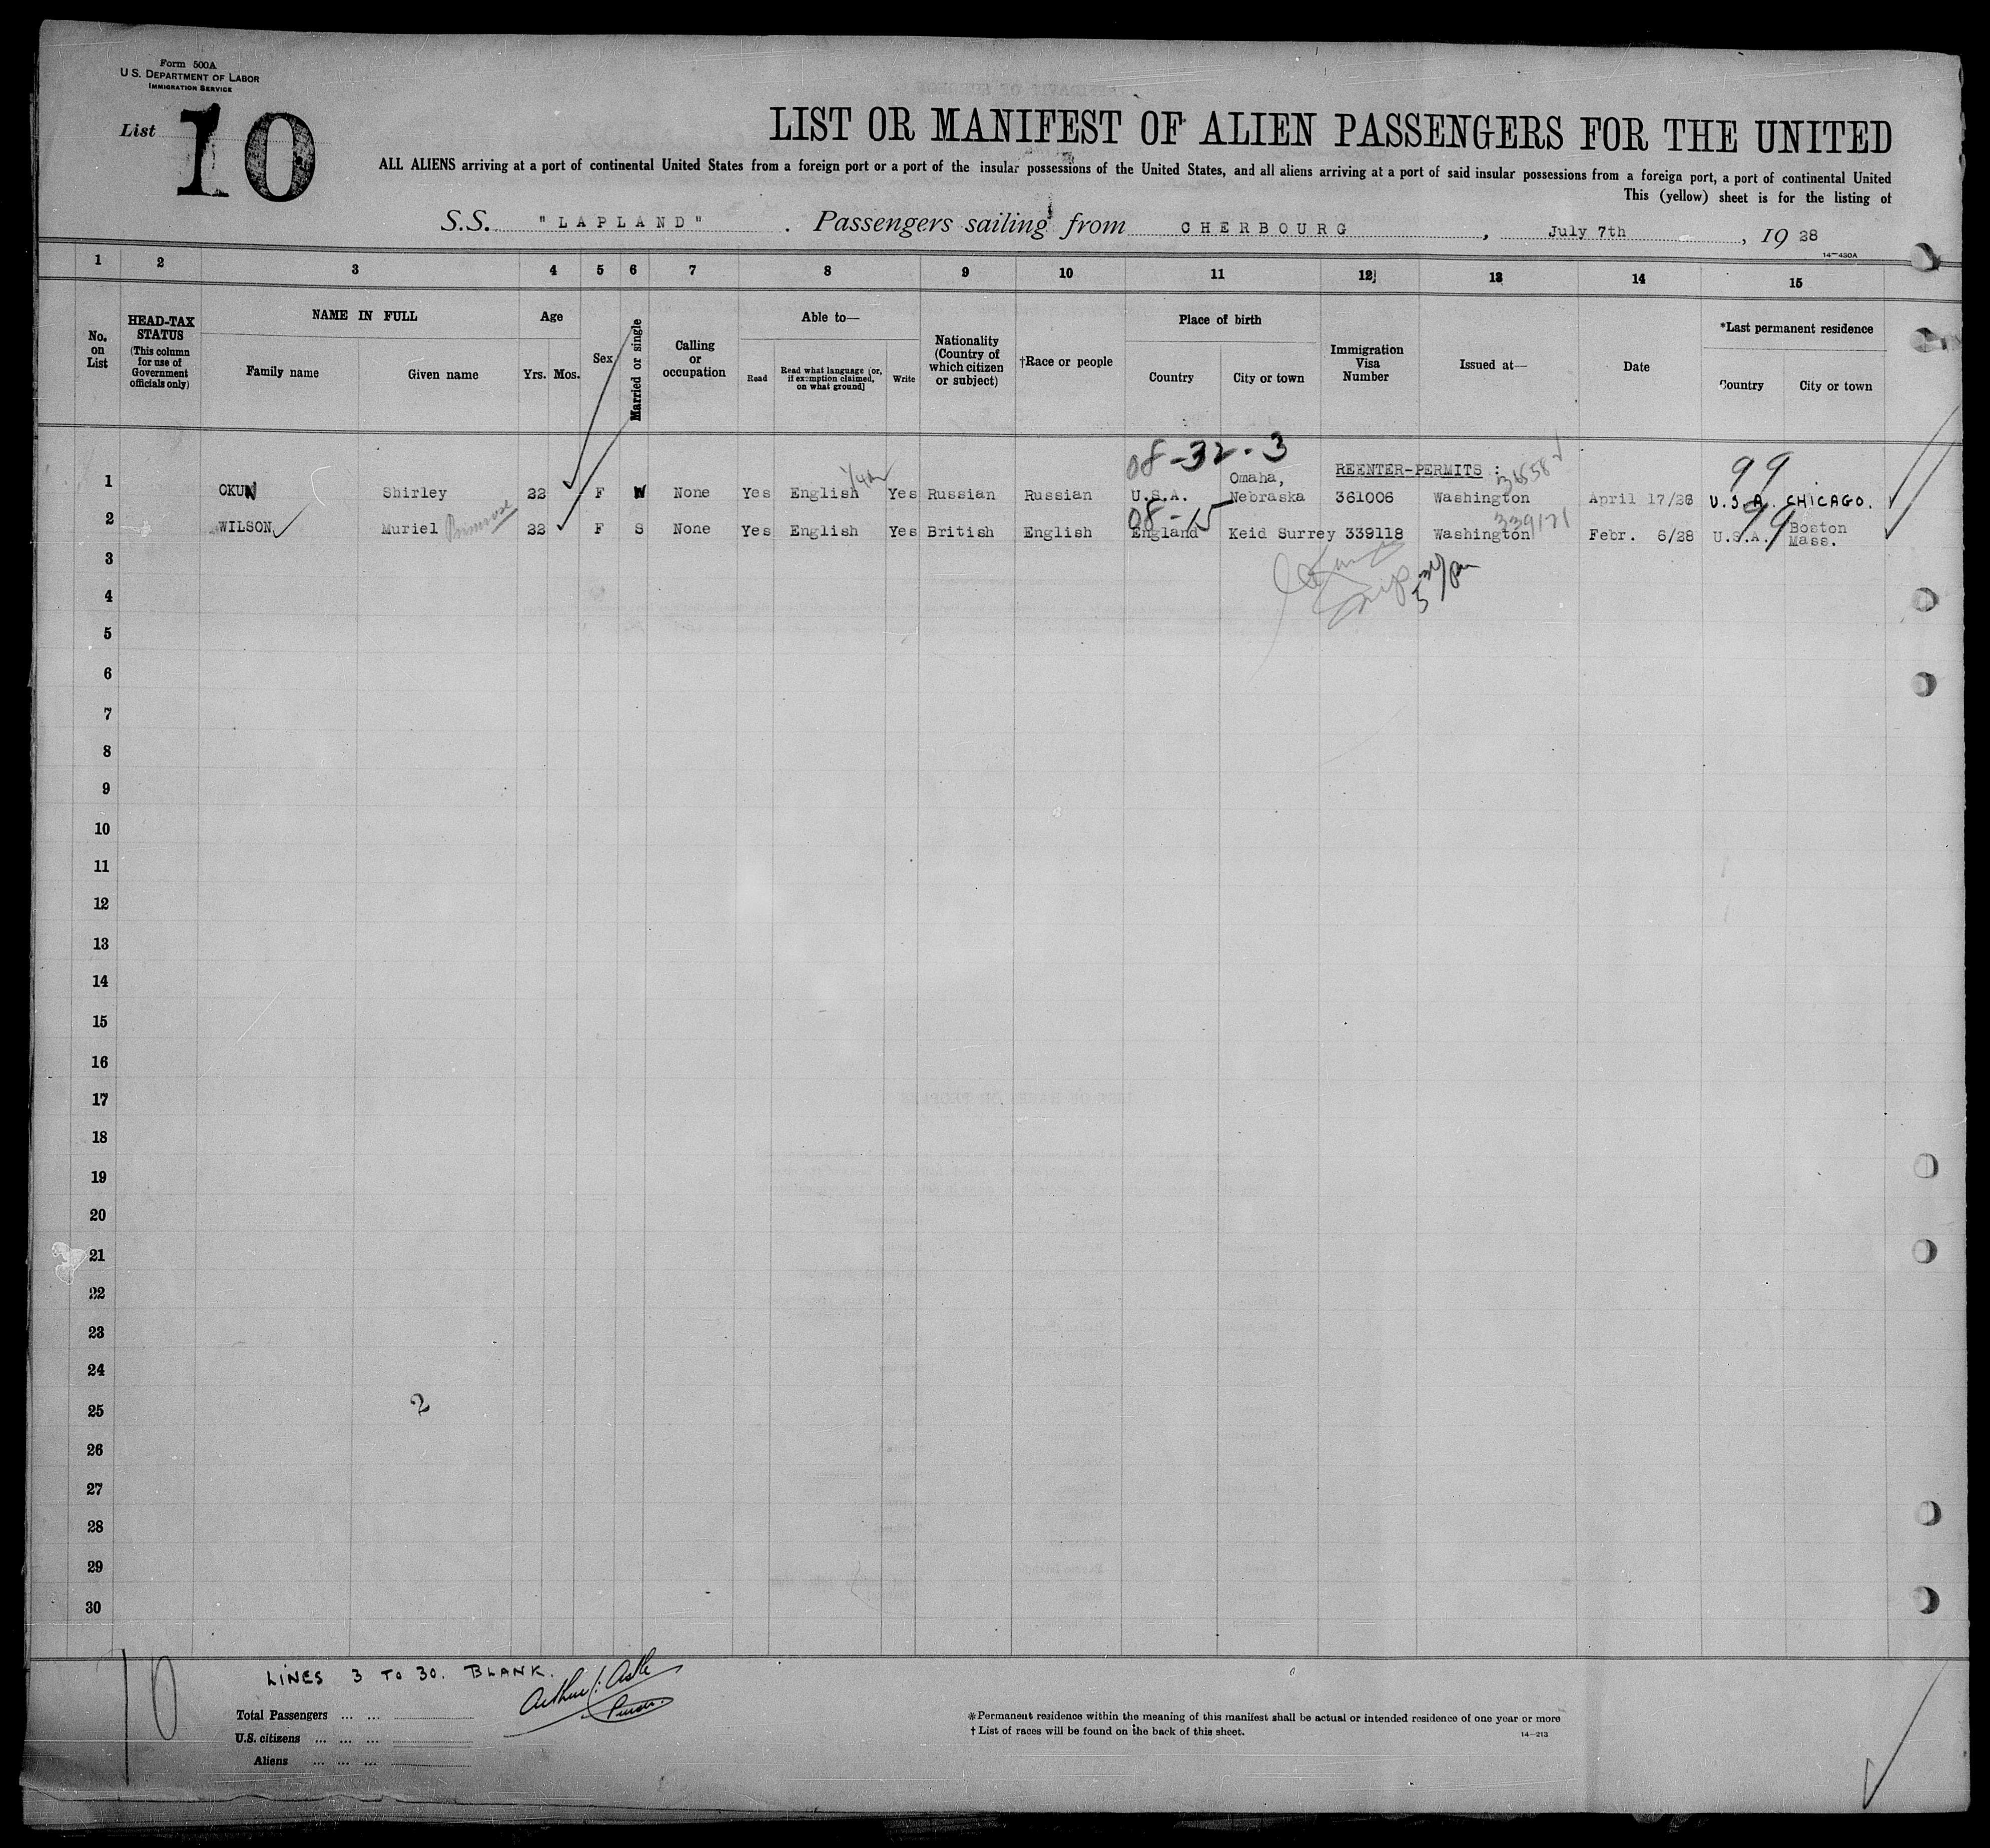 Form 500A
U.S. DEPARTMENT OF LABOR
IMMIGRATION SERVICE
List 10
LIST OR MANIFEST OF ALIEN PASSENGERS FOR THE UNITED
ALL ALIENS arriving at a port of continental United States from a foreign port or a port of the insular possessions of the United States, and all aliens arriving at a port of said insular possessions from a foreign port, a port of continental United
This (yellow) sheet is for the listing of
S.S. "LAPLAND" . Passengers sailing from CHERBOURG , July 7th , 19 28
14—430A
1 2 3 4 5 6 7 8 9 10 11 12 13 14 15
No. on List
HEAD-TAX STATUS
(This column for use of Government officials only)
NAME IN FULL
Family name
Given name
Age
Yrs. Mos.
Sex
Married or single
Calling or occupation
Able to—
Read
Read what language [or, if exemption claimed, on what ground]
Write
Nationality (Country of which citizen or subject)
†Race or people
Place of birth
Country
City or town
Immigration Visa Number
Issued at—
Date
*Last permanent residence
Country
City or town
08-32-3
REENTER-PERMITS :
99
1 OKUN Shirley 22 F W None Yes English Yes Russian Russian U.S.A. Omaha, Nebraska 361006 Washington April 17/28 U.S.A. CHICAGO.
08-15
339171
99
2 WILSON Muriel Primrose 22 F S None Yes English Yes British English England Keid Surrey 339118 Washington Febr. 6/28 U.S.A. Boston Mass.
3
4
5
6
7
8
9
10
11
12
13
14
15
16
17
18
19
20
21
22
23
24
25 2
26
27
28
29
30
10
LINES 3 TO 30. BLANK.
Purser.
Total Passengers ... ...
U.S. citizens ... ... ...
Aliens ... ... ...
*Permanent residence within the meaning of this manifest shall be actual or intended residence of one year or more
† List of races will be found on the back of this sheet.
14—213